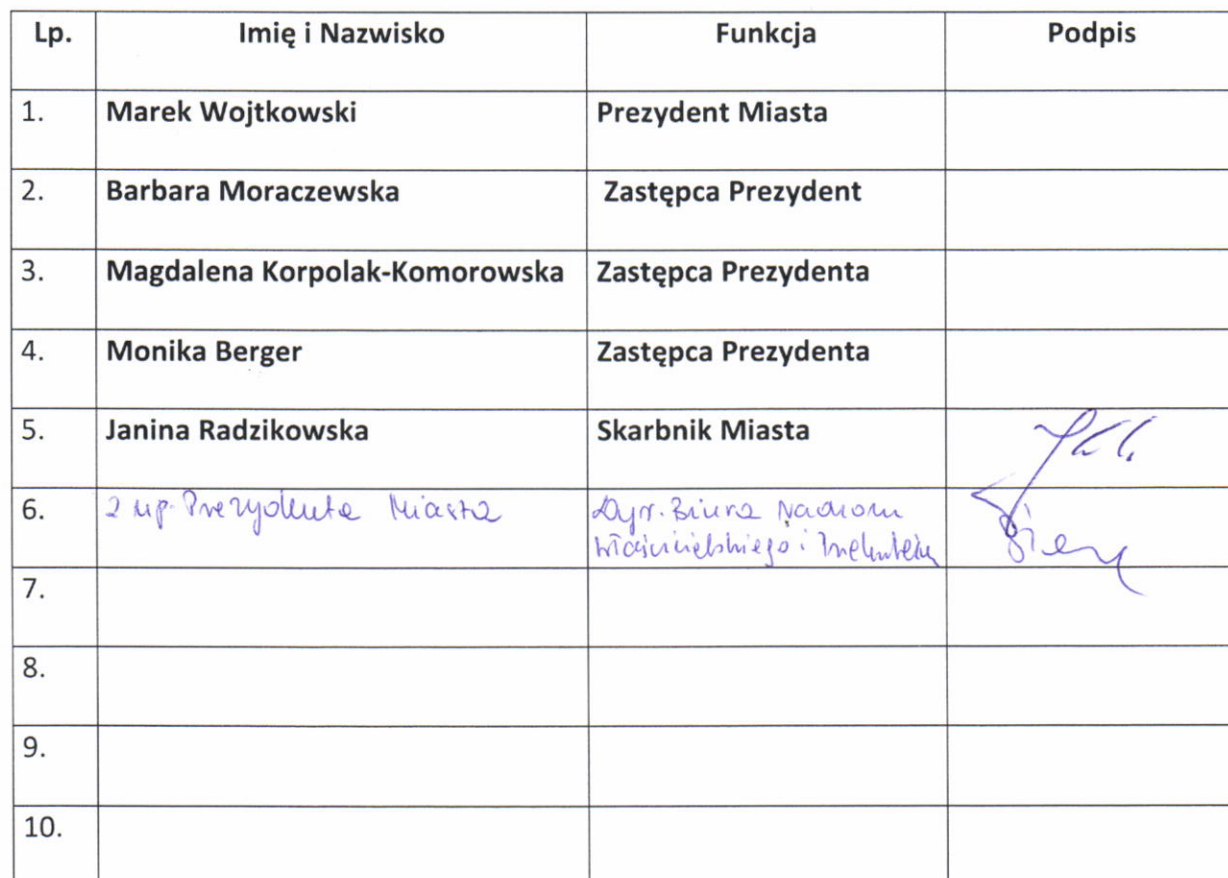 Lp. Imię i Nazwisko Funkcja Podpis
1. Marek Wojtkowski Prezydent Miasta
2. Barbara Moraczewska Zastępca Prezydent
3. Magdalena Korpolak-Komorowska Zastępca Prezydenta
4. Monika Berger Zastępca Prezydenta
5. Janina Radzikowska Skarbnik Miasta
6. Z up. Prezydenta Miasta Dyr. Biura Nadzoru
Właścicielskiego i
7.
8.
9.
10.